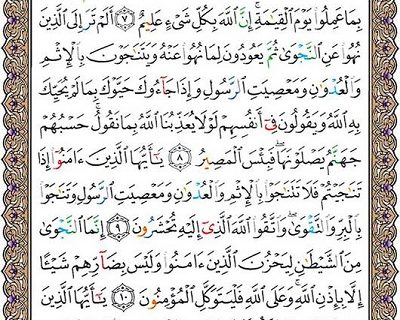 بِمَا عَمِلُوا۟ يَوْمَ ٱلْقِيَـٰمَةِ ۚ إِنَّ ٱللَّهَ بِكُلِّ شَىْءٍ عَلِيمٌ ٧ أَلَمْ تَرَ إِلَى ٱلَّذِينَ
نُهُوا۟ عَنِ ٱلنَّجْوَىٰ ثُمَّ يَعُودُونَ لِمَا نُهُوا۟ عَنْهُ وَيَتَنَـٰجَوْنَ بِٱلْإِثْمِ
وَٱلْعُدْوَٰنِ وَمَعْصِيَتِ ٱلرَّسُولِ وَإِذَا جَآءُوكَ حَيَّوْكَ بِمَا لَمْ يُحَيِّكَ
بِهِ ٱللَّهُ وَيَقُولُونَ فِىٓ أَنفُسِهِمْ لَوْلَا يُعَذِّبُنَا ٱللَّهُ بِمَا نَقُولُ ۚ حَسْبُهُمْ
جَهَنَّمُ يَصْلَوْنَهَا ۖ فَبِئْسَ ٱلْمَصِيرُ ٨ يَـٰٓأَيُّهَا ٱلَّذِينَ ءَامَنُوٓا۟ إِذَا
تَنَـٰجَيْتُمْ فَلَا تَتَنَـٰجَوْا۟ بِٱلْإِثْمِ وَٱلْعُدْوَٰنِ وَمَعْصِيَتِ ٱلرَّسُولِ وَتَنَـٰجَوْا۟
بِٱلْبِرِّ وَٱلتَّقْوَىٰ ۖ وَٱتَّقُوا۟ ٱللَّهَ ٱلَّذِىٓ إِلَيْهِ تُحْشَرُونَ ٩ إِنَّمَا ٱلنَّجْوَىٰ
مِنَ ٱلشَّيْطَـٰنِ لِيَحْزُنَ ٱلَّذِينَ ءَامَنُوا۟ وَلَيْسَ بِضَآرِّهِمْ شَيْـًٔا
إِلَّا بِإِذْنِ ٱللَّهِ ۚ وَعَلَى ٱللَّهِ فَلْيَتَوَكَّلِ ٱلْمُؤْمِنُونَ ١٠ يَـٰٓأَيُّهَا ٱلَّذِينَ